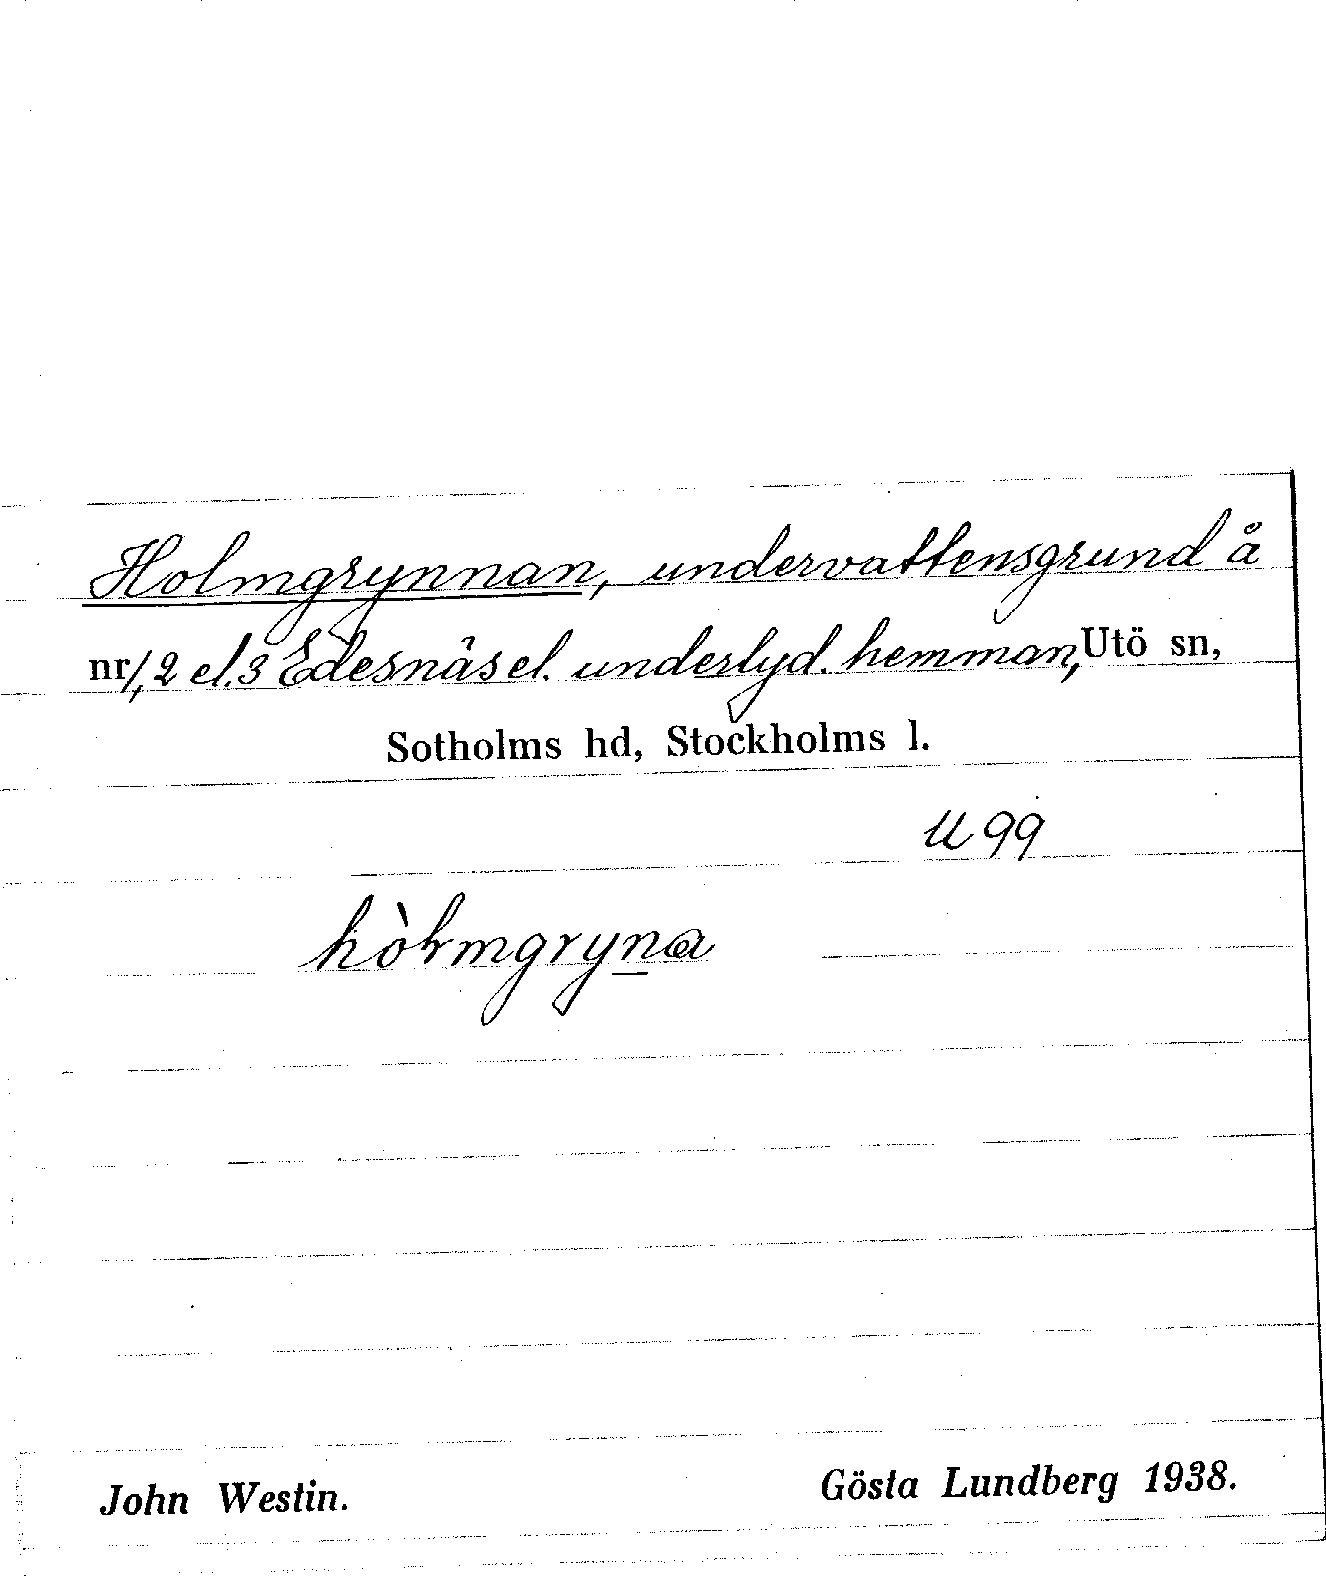 Holmgrynnan, undervattensgrund å
nr 1, 2 el. 3 Edesnäs el. underlyd. hemman, Utö sn,
Sotholms hd, Stockholms l.
U 99
hòłmgryna
John Westin.
Gösta Lundberg 1938.